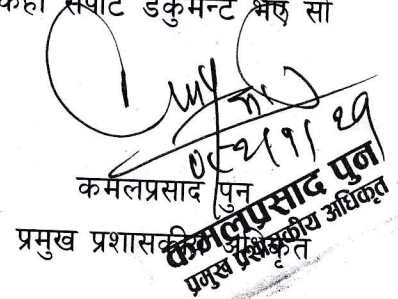 सपोर्ट डकुमेन्ट भए सो
कमलप्रसाद पुन
प्रमुख प्रशासकीय अधिकृत
कमलप्रसाद पुन
प्रमुख प्रशासकीय अधिकृत